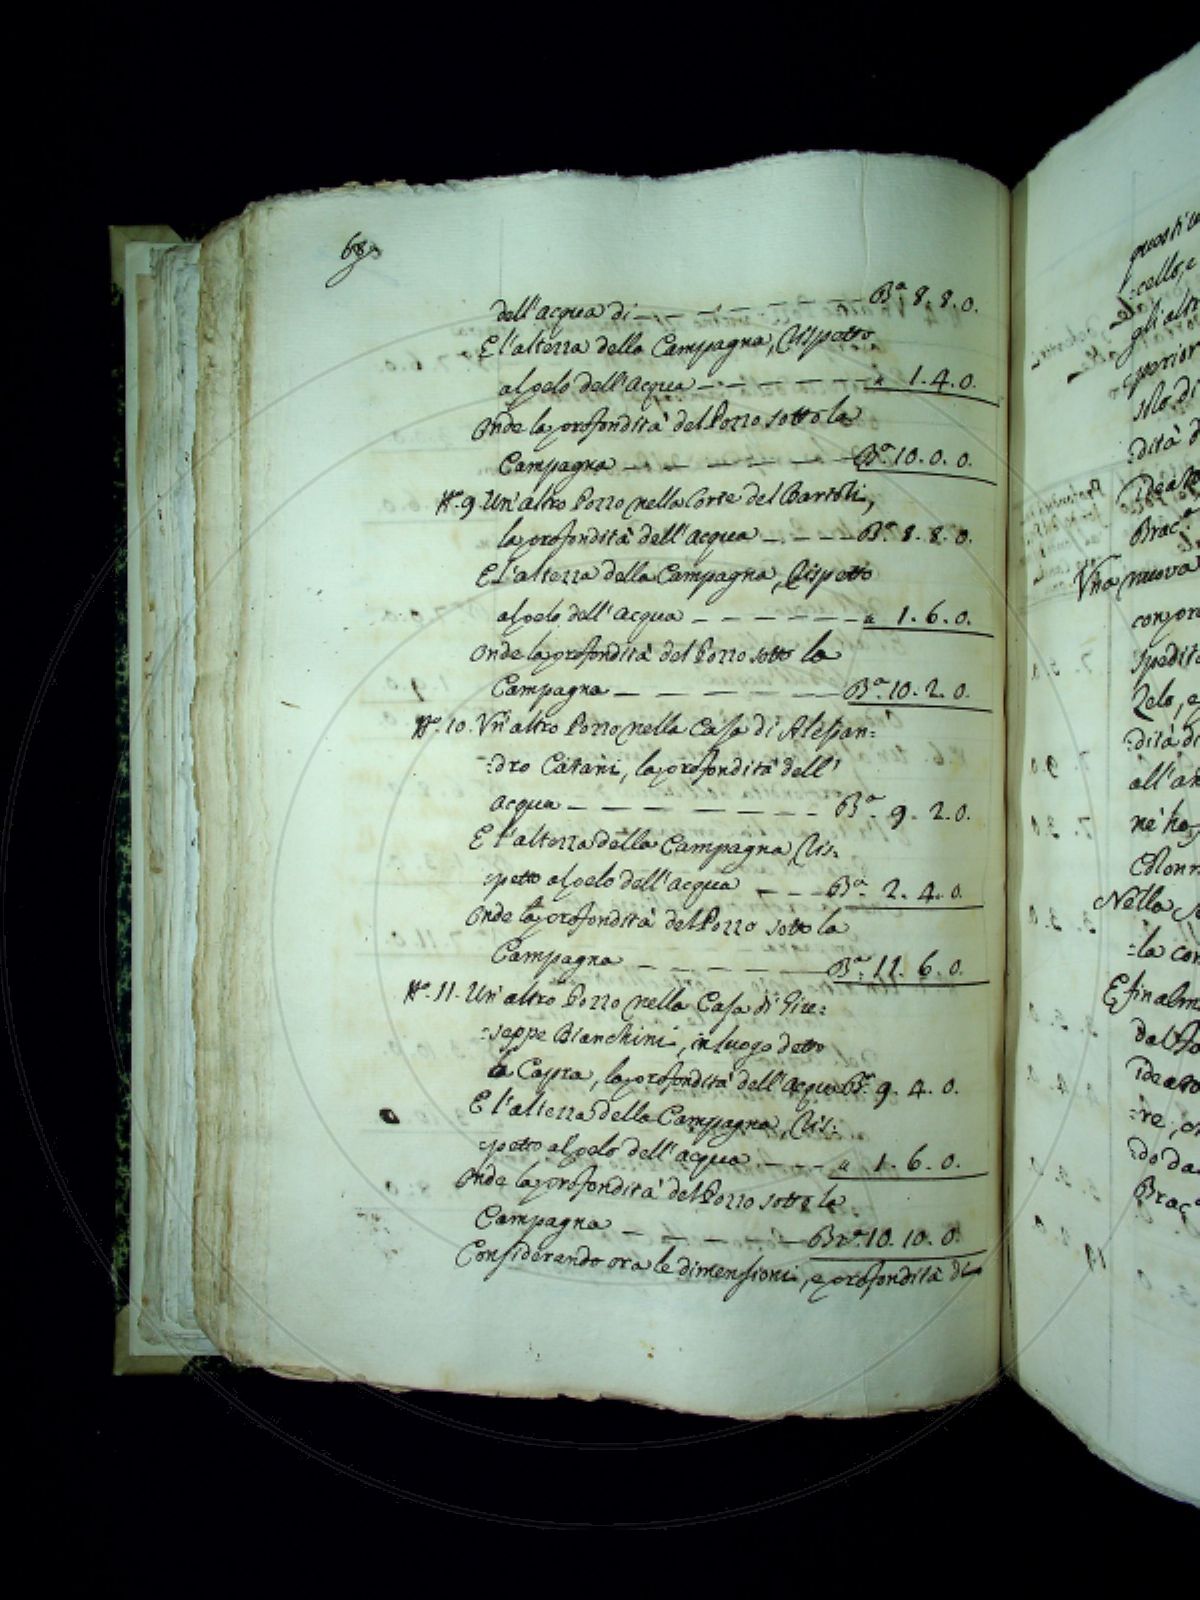 68
dell'acqua di — — — — — Bª 8. 8. 0.
E l'altezza della Campagna, Rispetto
al pelo dell'acqua — — — — " 1. 4. 0.
Onde la profondità del Pozzo sotto la
Campagna — — — — — Bª. 10. 0. 0.
Nº. 9. Un'altro Pozzo nella Corte del Bartoli,
la profondità dell'Acqua — — — Bª. 8. 8. 0.
E L'altezza della Campagna, Rispetto
al pelo dell'acqua — — — — — " 1. 6. 0.
Onde la profondità del Pozzo sotto la
Campagna — — — — — Bª. 10. 2. 0.
Nº. 10. Un'altro Pozzo nella Casa di Alessan=
=dro Catani, la profondità dell'
acqua — — — — — — Bª. 9. 2. 0.
E l'altezza della Campagna, Ris=
=petto al pelo dell'acqua — — — Bª. 2. 4. 0.
Onde la profondità del Pozzo sotto la
Campagna — — — — — Bª. 11. 6. 0.
Nº. 11. Un'altro Pozzo nella Casa di Giu=
=seppe Bianchini, in luogo detto
la Capra, la profondità dell'acqua Bª. 9. 4. 0.
E l'altezza della Campagna, Ris=
=petto al pelo dell'acqua — — — " 1. 6. 0.
Onde la profondità del Pozzo sotto la
Campagna — — — — — Brª. 10. 10. 0.
Considerando ora le dimensioni, e profondità di
gli altr
dità d
Brac.ª
Una nuova
spedit
Zelo, e
=dità di
all'an
nè ho
Colonn
Nella
=la con
E finalm
dal fo
=re, o
=do da
Brac